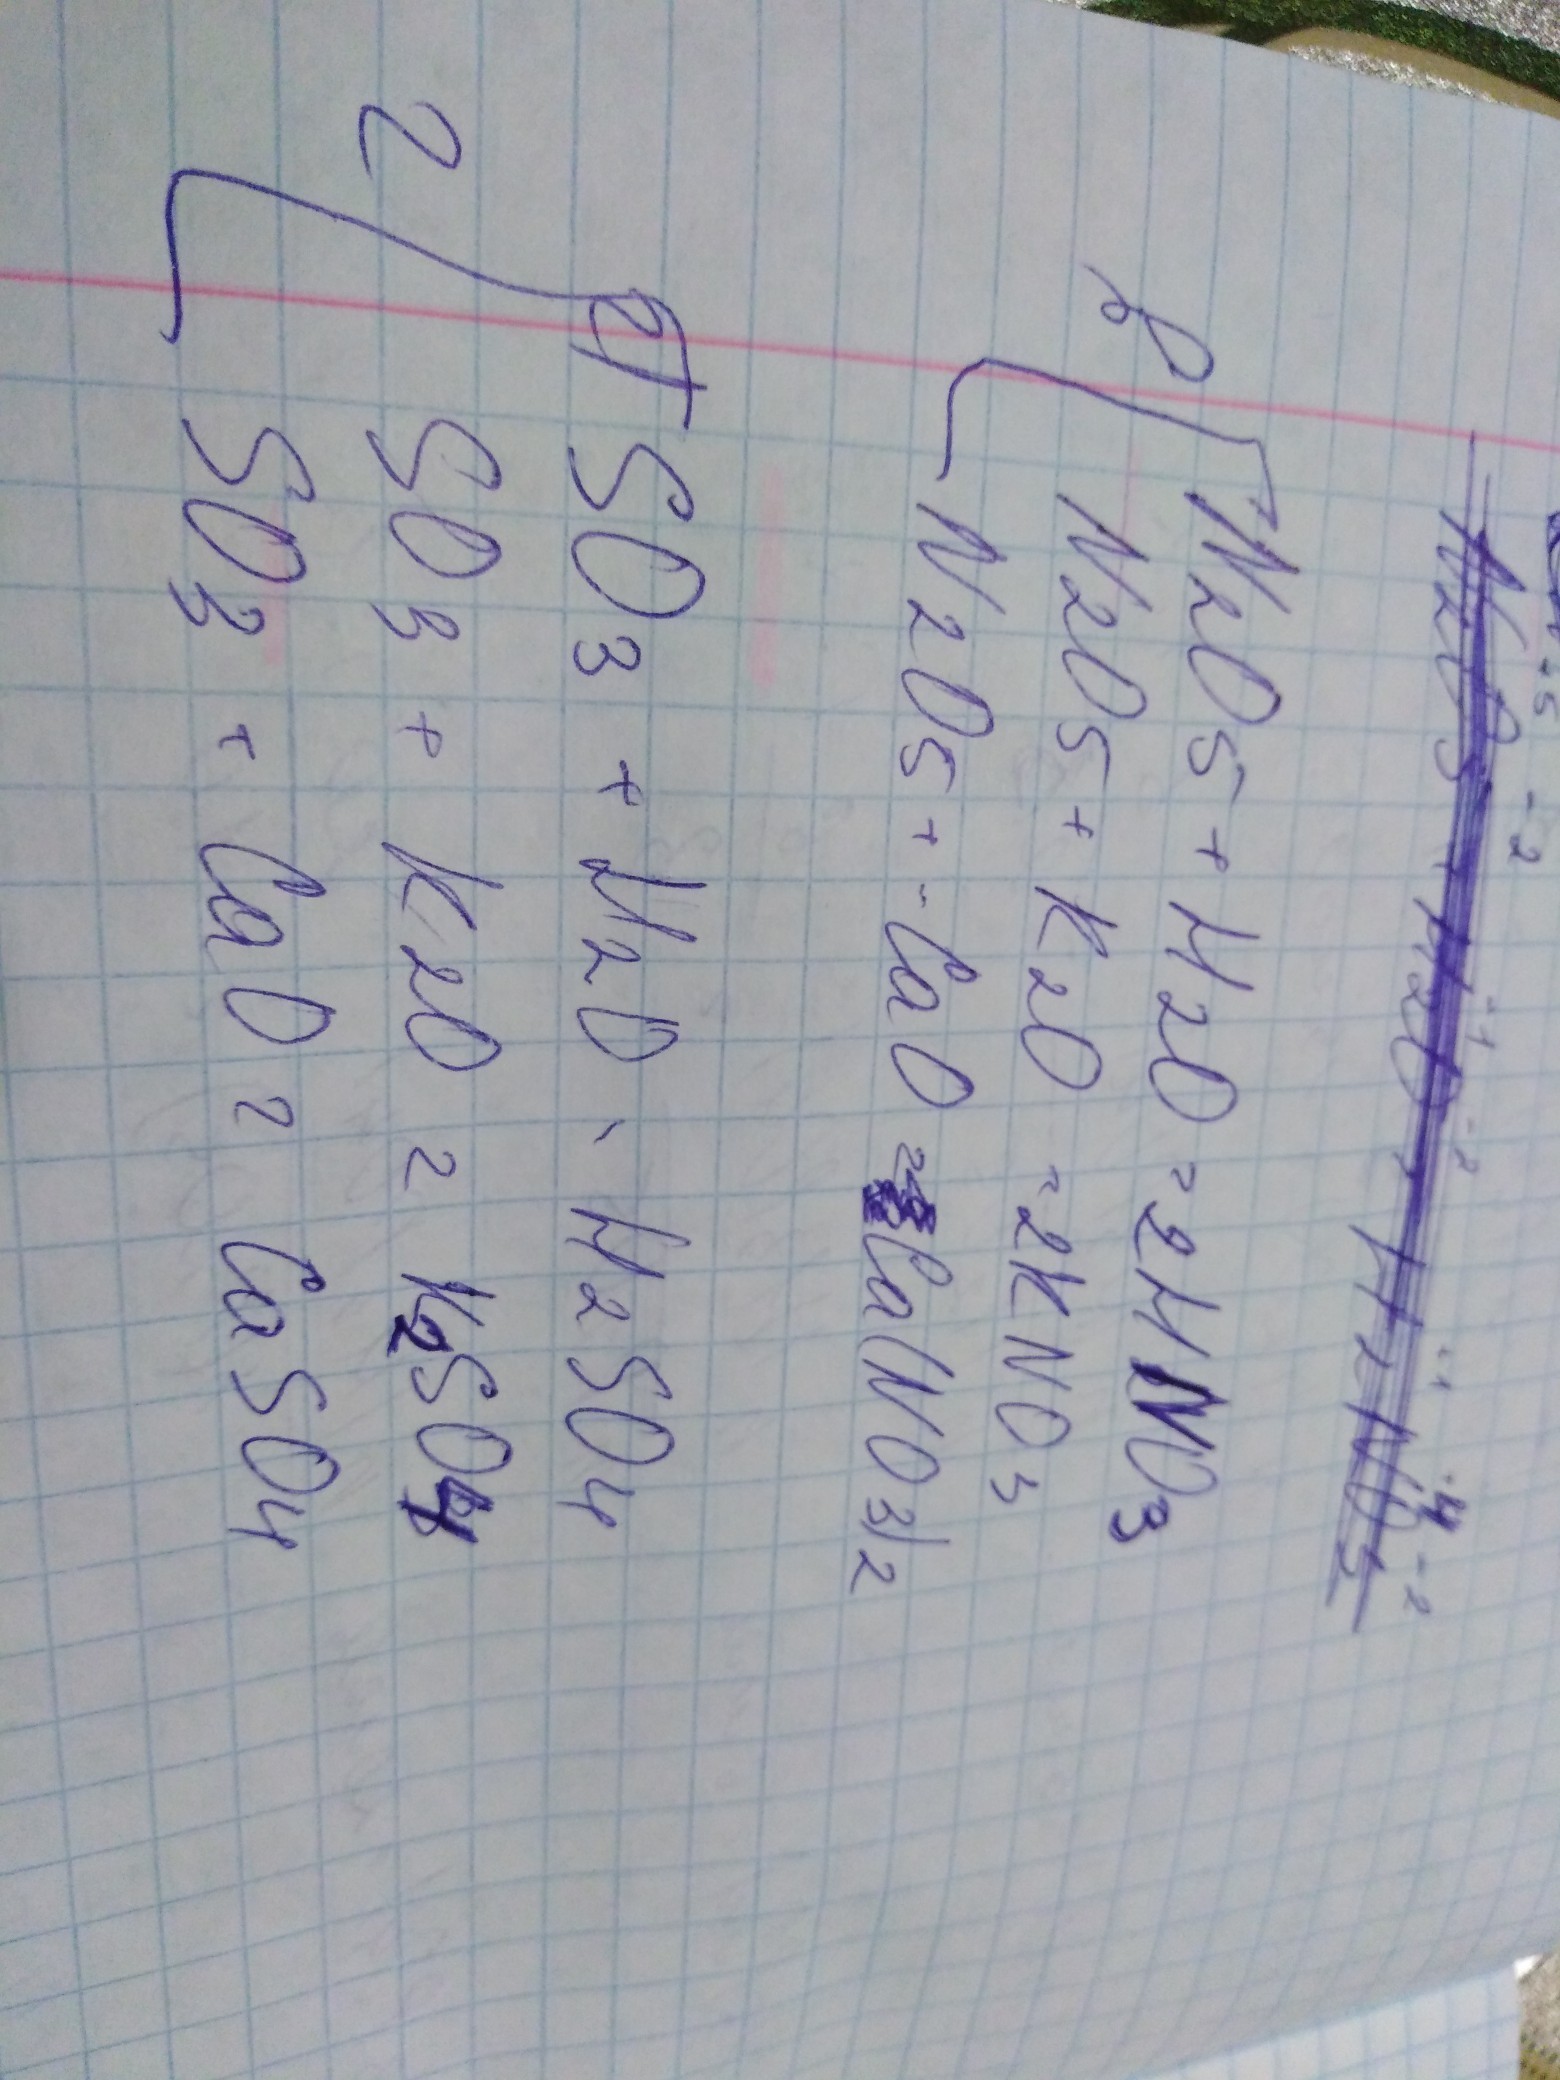 N2O5 + H2O = 2HNO3
N2O5 + K2O = 2KNO3
N2O5 + CaO = Ca(NO3)2
SO3 + H2O = H2SO4
2 SO3 + K2O = K2SO4
SO3 + CaO = CaSO4